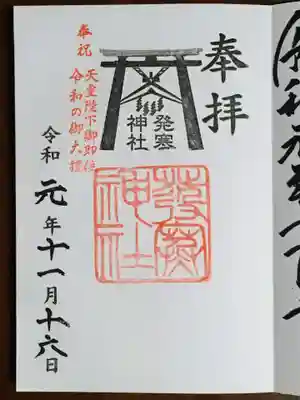 奉拝
発寒
神社
発寒
神社
奉祝
天皇陛下御即位
令和の御大禮
令和元年十一月十六日